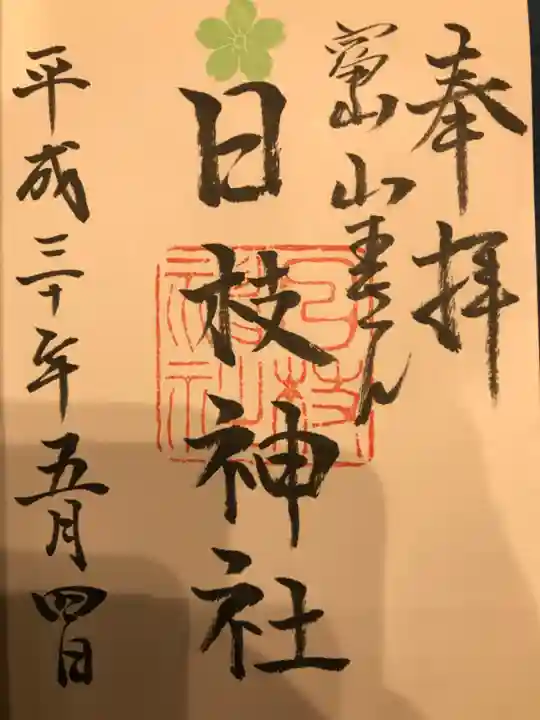 奉拝
富山山王さん
日枝神社
日枝神社
平成三十年五月四日